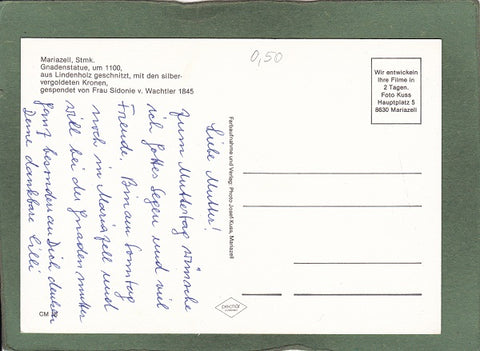 Mariazell, Stmk.
Gnadenstatue, um 1100,
aus Lindenholz geschnitzt, mit den silber-
vergoldeten Kronen,
gespendet von Frau Sidonie v. Wachtler 1845
0,50
Wir entwickeln
Ihre Filme in
2 Tagen.
Foto Kuss
Hauptplatz 5
8630 Mariazell
Liebe Mutter!
Zum Muttertag wünsche
ich Gottes Segen und viel
Freude. Bin am Sonntag
noch in Mariazell und
will bei der Gnadenmutter
ganz besonders an Dich denken
Deine dankbare Lilli
Farbaufnahme und Verlag: Photo Josef Kuss, Mariazell
CM